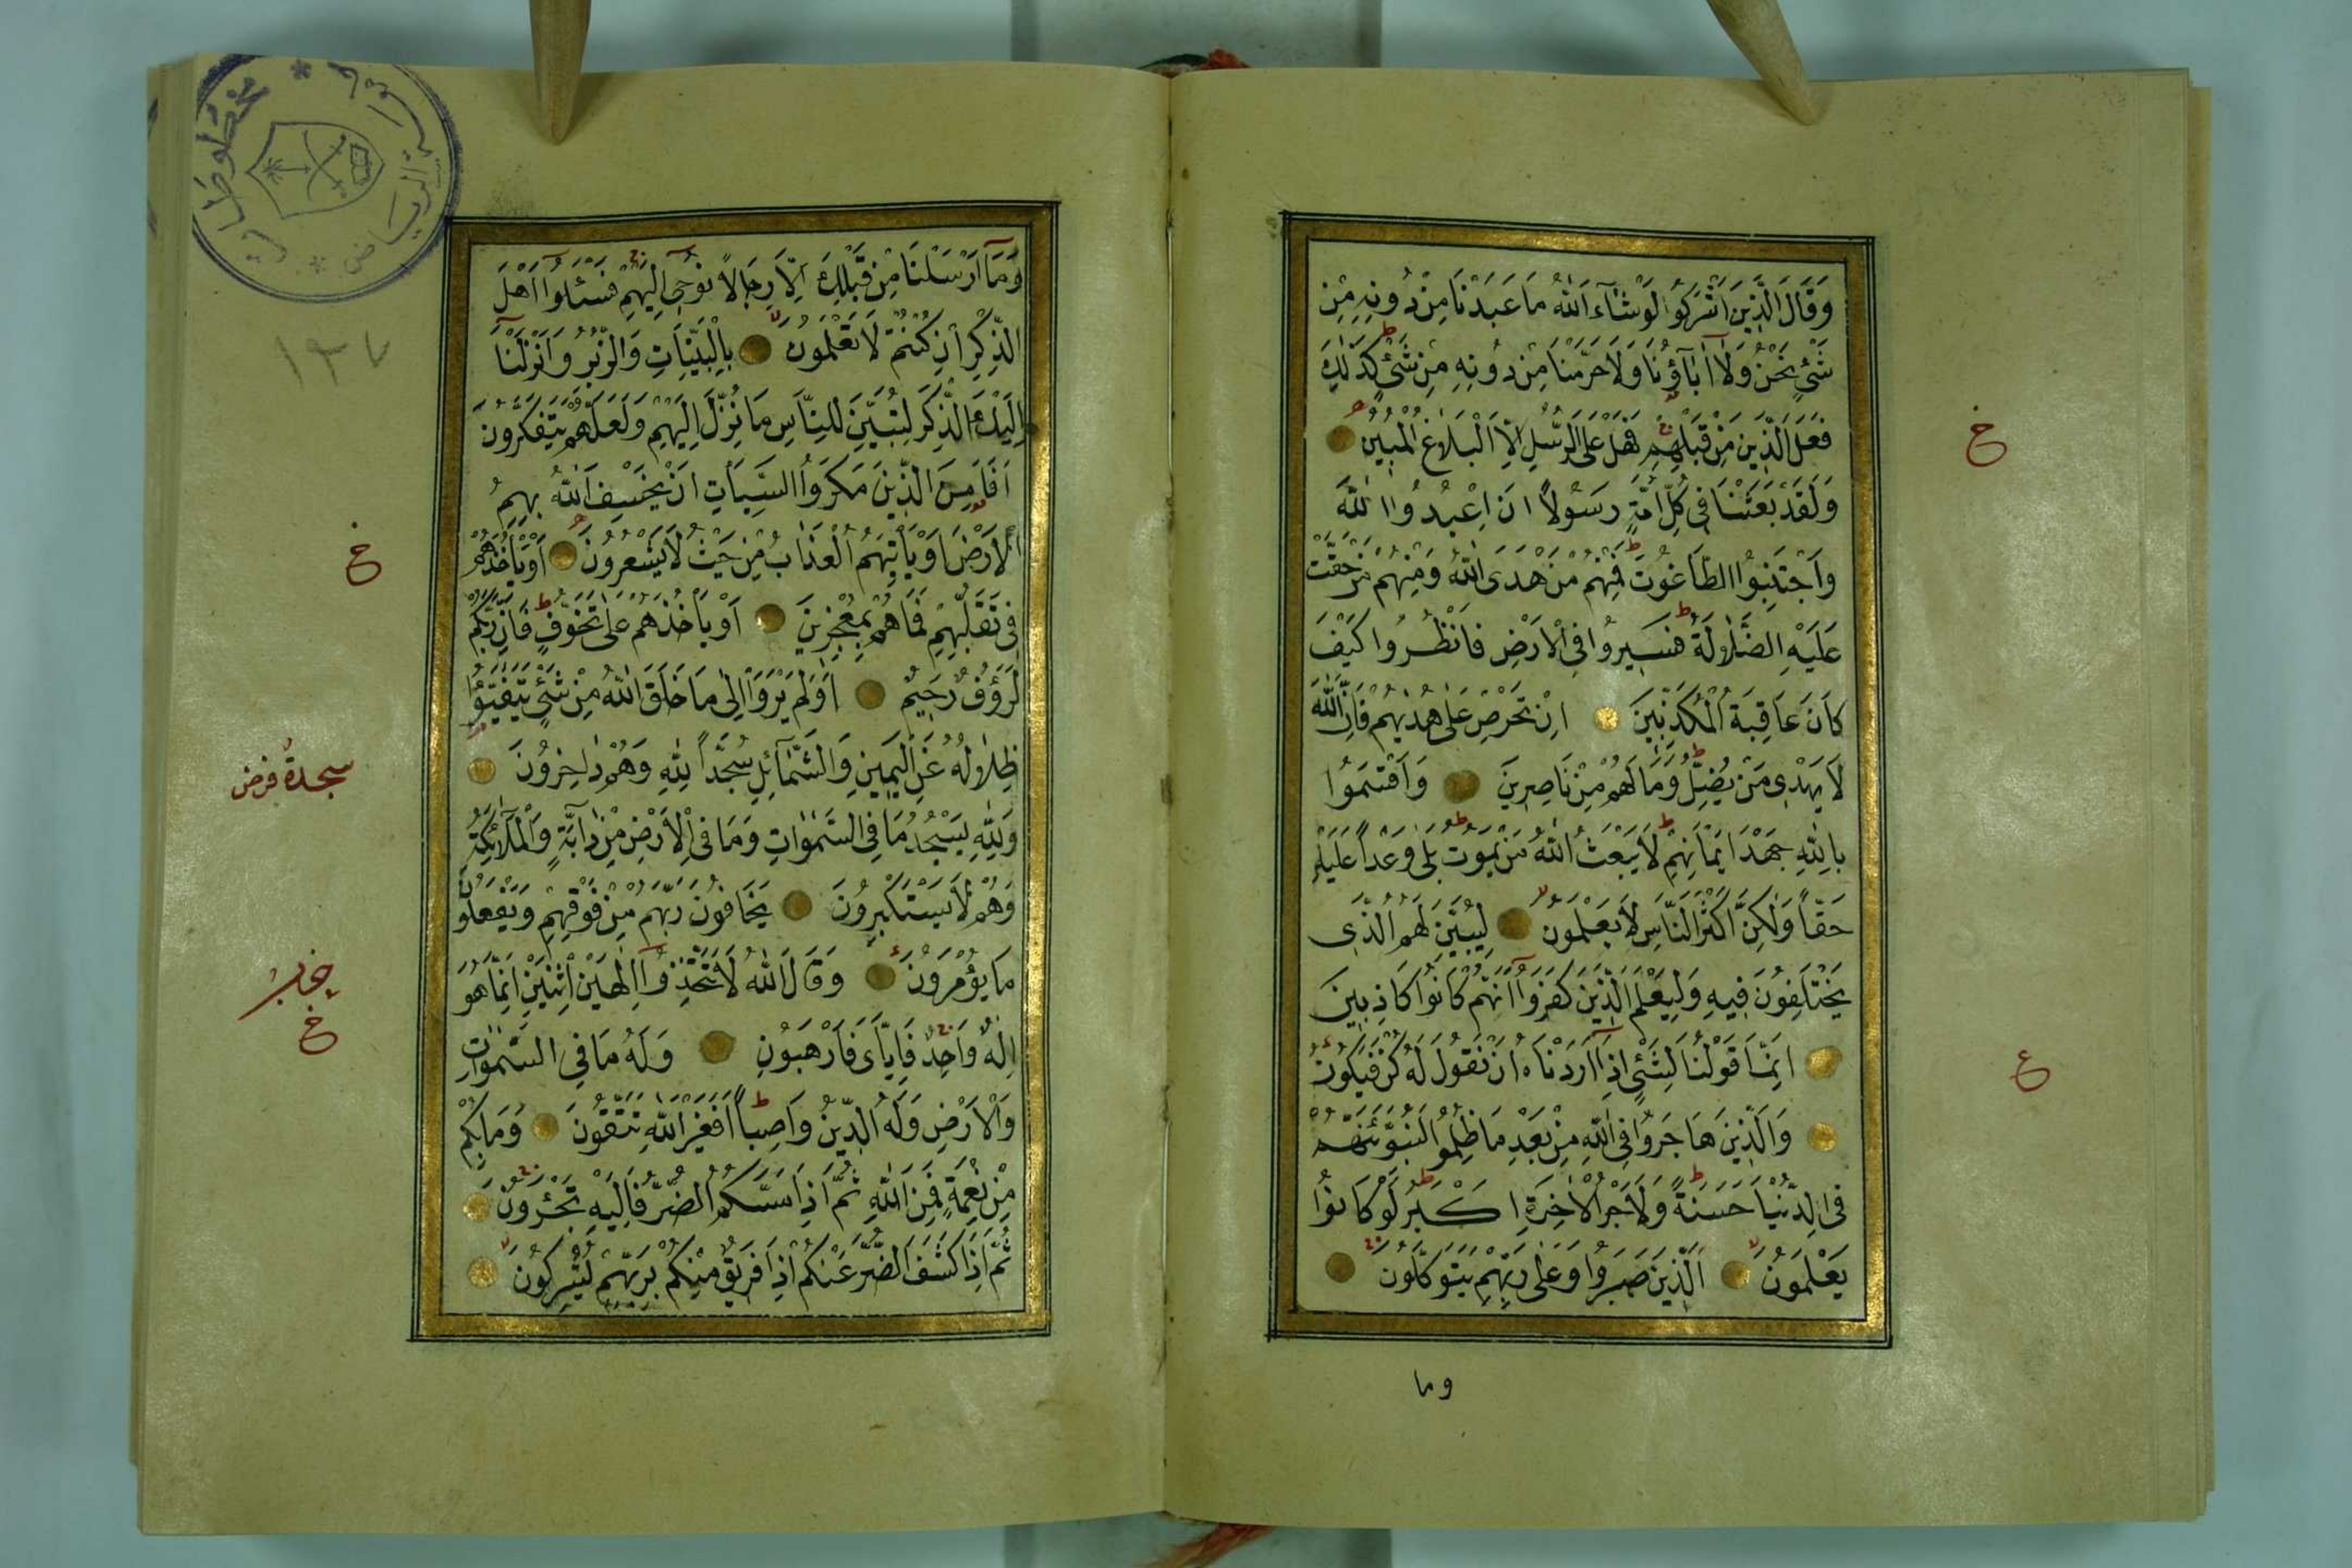 وَقَالَ الَّذِينَ اَشْرَكُوا لَوْ شَاءَ اللّٰهُ مَا عَبَدْنَا مِنْ دُونِهِ مِنْ
شَيْءٍ نَحْنُ وَلَا اٰبَاؤُنَا وَلَا حَرَّمْنَا مِنْ دُونِهِ مِنْ شَيْءٍ كَذٰلِكَ
فَعَلَ الَّذِينَ مِنْ قَبْلِهِمْ فَهَلْ عَلَى الرُّسُلِ اِلَّا الْبَلَاغُ الْمُبِينُ
وَلَقَدْ بَعَثْنَا فِي كُلِّ اُمَّةٍ رَسُولًا اَنِ اعْبُدُوا اللّٰهَ
خ
وَاجْتَنِبُوا الطَّاغُوتَ فَمِنْهُمْ مَنْ هَدَى اللّٰهُ وَمِنْهُمْ مَنْ حَقَّتْ
عَلَيْهِ الضَّلَالَةُ فَسِيرُوا فِي الْاَرْضِ فَانْظُرُوا كَيْفَ
كَانَ عَاقِبَةُ الْمُكَذِّبِينَ اِنْ تَحْرِصْ عَلٰى هُدٰيهُمْ فَاِنَّ اللّٰهَ
لَا يَهْدِي مَنْ يُضِلُّ وَمَا لَهُمْ مِنْ نَاصِرِينَ وَاَقْسَمُوا
بِاللّٰهِ جَهْدَ اَيْمَانِهِمْ لَا يَبْعَثُ اللّٰهُ مَنْ يَمُوتُ بَلٰى وَعْدًا عَلَيْهِ
حَقًّا وَلٰكِنَّ اَكْثَرَ النَّاسِ لَا يَعْلَمُونَ لِيُبَيِّنَ لَهُمُ الَّذِي
يَخْتَلِفُونَ فِيهِ وَلِيَعْلَمَ الَّذِينَ كَفَرُوا اَنَّهُمْ كَانُوا كَاذِبِينَ
اِنَّمَا قَوْلُنَا لِشَيْءٍ اِذَا اَرَدْنَاهُ اَنْ نَقُولَ لَهُ كُنْ فَيَكُونُ
ع
وَالَّذِينَ هَاجَرُوا فِي اللّٰهِ مِنْ بَعْدِ مَا ظُلِمُوا لَنُبَوِّئَنَّهُمْ
فِي الدُّنْيَا حَسَنَةً وَلَاَجْرُ الْاٰخِرَةِ اَكْبَرُ لَوْ كَانُوا
يَعْلَمُونَ اَلَّذِينَ صَبَرُوا وَعَلٰى رَبِّهِمْ يَتَوَكَّلُونَ
وما
مخطوطات
الرياض
١٣٧
وَمَا اَرْسَلْنَا مِنْ قَبْلِكَ اِلَّا رِجَالًا نُوحِي اِلَيْهِمْ فَسْئَلُوا اَهْلَ
الذِّكْرِ اِنْ كُنْتُمْ لَا تَعْلَمُونَ بِالْبَيِّنَاتِ وَالزُّبُرِ وَاَنْزَلْنَا
اِلَيْكَ الذِّكْرَ لِتُبَيِّنَ لِلنَّاسِ مَا نُزِّلَ اِلَيْهِمْ وَلَعَلَّهُمْ يَتَفَكَّرُونَ
اَفَاَمِنَ الَّذِينَ مَكَرُوا السَّيِّاٰتِ اَنْ يَخْسِفَ اللّٰهُ بِهِمُ
الْاَرْضَ اَوْ يَاْتِيَهُمُ الْعَذَابُ مِنْ حَيْثُ لَا يَشْعُرُونَ اَوْ يَاْخُذَهُمْ
خ
فِي تَقَلُّبِهِمْ فَمَا هُمْ بِمُعْجِزِينَ اَوْ يَاْخُذَهُمْ عَلٰى تَخَوُّفٍ فَاِنَّ رَبَّكُمْ
لَرَؤُفٌ رَحِيمٌ اَوَلَمْ يَرَوْا اِلٰى مَا خَلَقَ اللّٰهُ مِنْ شَيْءٍ يَتَفَيَّؤُا
ظِلَالُهُ عَنِ الْيَمِينِ وَالشَّمَائِلِ سُجَّدًا لِلّٰهِ وَهُمْ دَاخِرُونَ
سجدة فرض
وَلِلّٰهِ يَسْجُدُ مَا فِي السَّمٰوَاتِ وَمَا فِي الْاَرْضِ مِنْ دَابَّةٍ وَالْمَلٰئِكَةُ
وَهُمْ لَا يَسْتَكْبِرُونَ يَخَافُونَ رَبَّهُمْ مِنْ فَوْقِهِمْ وَيَفْعَلُونَ
مَا يُؤْمَرُونَ وَقَالَ اللّٰهُ لَا تَتَّخِذُوا اِلٰهَيْنِ اثْنَيْنِ اِنَّمَا هُوَ
حزب
خ
اِلٰهٌ وَاحِدٌ فَاِيَّايَ فَارْهَبُونِ وَلَهُ مَا فِي السَّمٰوَاتِ
وَالْاَرْضِ وَلَهُ الدِّينُ وَاصِبًا اَفَغَيْرَ اللّٰهِ تَتَّقُونَ وَمَا بِكُمْ
مِنْ نِعْمَةٍ فَمِنَ اللّٰهِ ثُمَّ اِذَا مَسَّكُمُ الضُّرُّ فَاِلَيْهِ تَجْئَرُونَ
ثُمَّ اِذَا كَشَفَ الضُّرَّ عَنْكُمْ اِذَا فَرِيقٌ مِنْكُمْ بِرَبِّهِمْ يُشْرِكُونَ